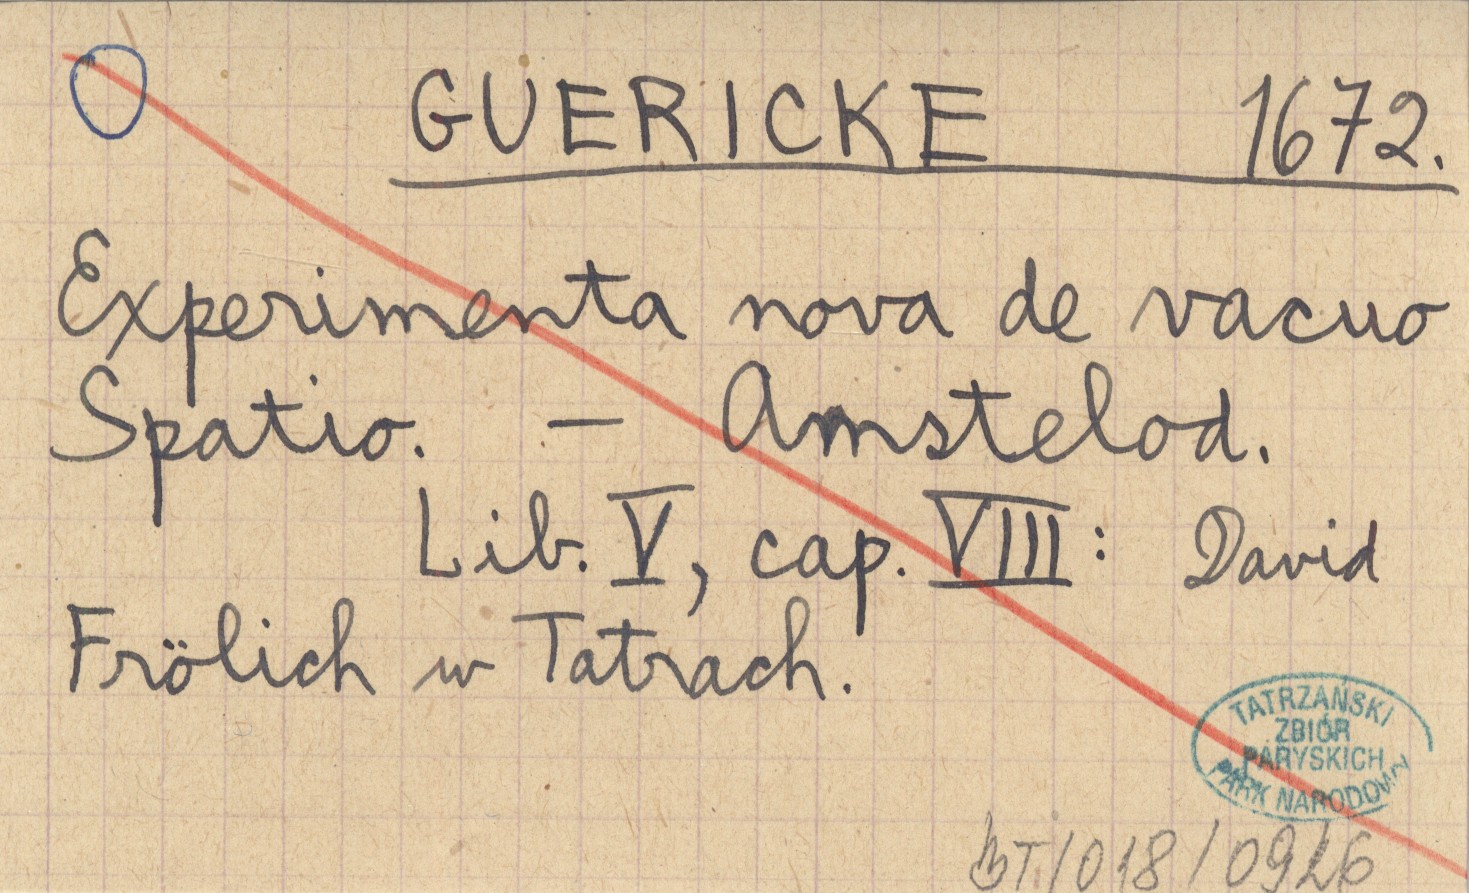 GUERICKE 1672.
Experimenta nova de vacuo
Spatio. — Amstelod.
Lib. V, cap. VIII: David
Frölich w Tatrach.
TATRZAŃSKI
ZBIÓR
PARYSKICH
PARK NARODOWY
BT/018/0926